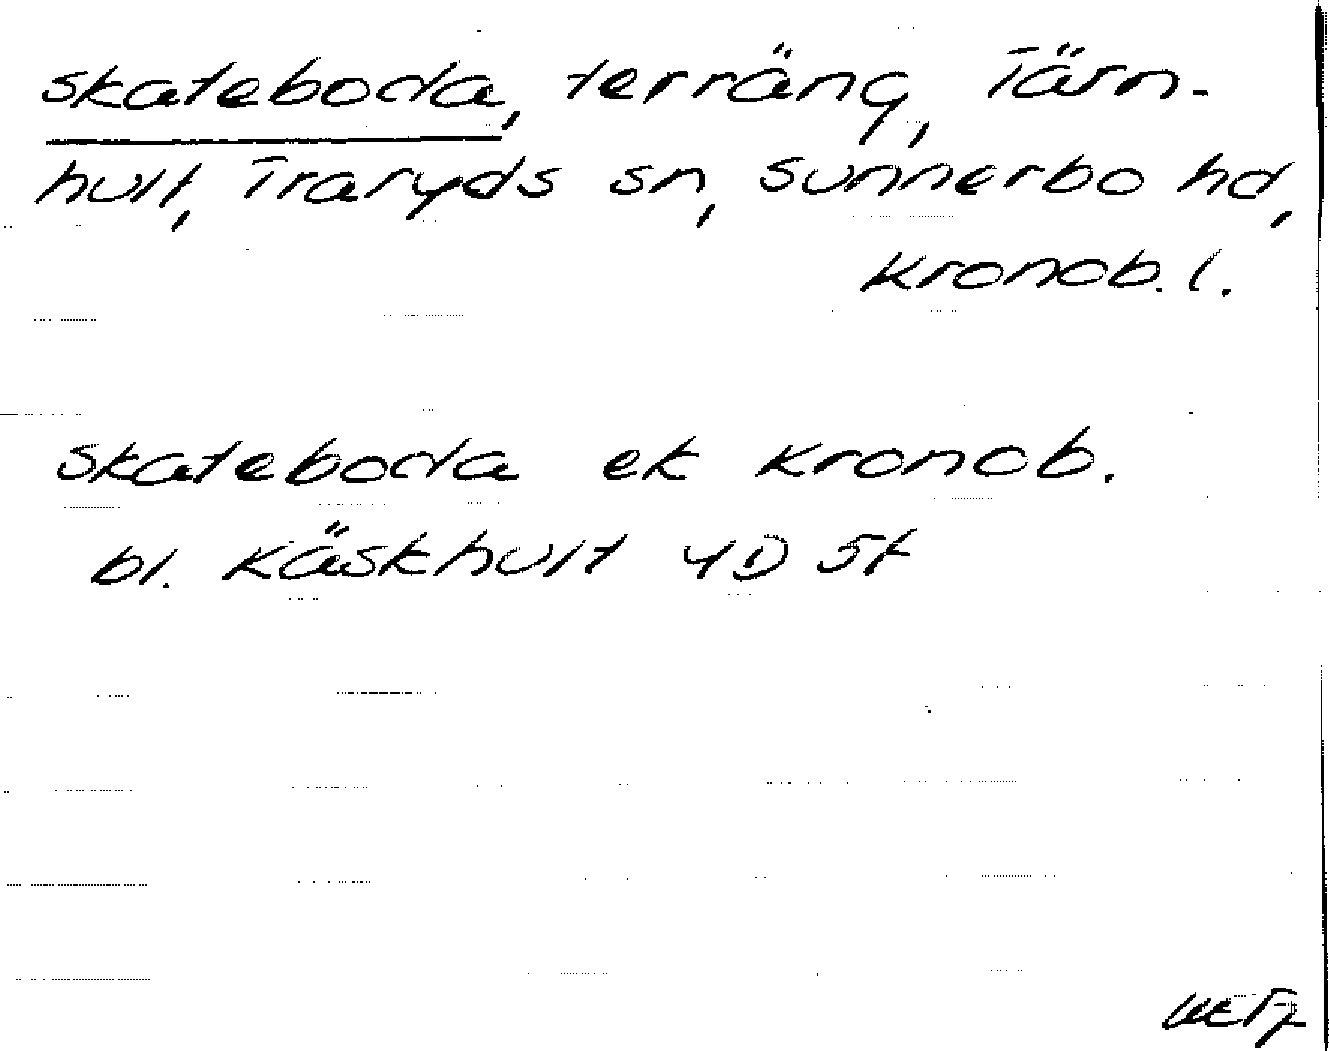 skateboda, terräng, Tärn-
hult, Traryds sn, Sunnerbo hd,
Kronob. l.
skateboda ek Kronob.
bl. Käskhult 4D 5f